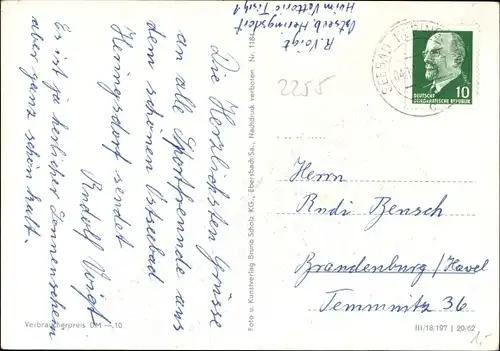 Die Herzlichsten Grüsse
an alle Sportfreunde aus
dem schönen Ostseebad
Heringsdorf sendet
Rudolf Voigt
Es ist ja herlicher Sonnenschein
aber ganz schön kalt.
Verbraucherpreis DM —,10
Foto u. Kunstverlag Bruno Scholz KG., Ebersbach Sa., Nachdruck verboten Nr. 1184
R. Voigt
Ostseeb Heringsdorf
Heim Vettorio
2255
SEEBAD
DEUTSCHE
DEMOKRATISCHE REPUBLIK
10
Herrn
Rudi Bensch
Brandenburg/Havel
Temmnitz 36
III/18/197 | 20/62
1,-